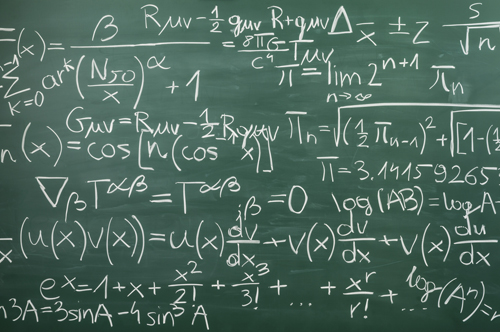 (x) = β / (N50/x)^α + 1
Rμν - 1/2 gμν R + gμν Λ = 8πG/c⁴ Tμν
x̄ ± z s/√n
Σ k=0 n-1 ar^k
π = lim n→∞ 2^(n+1) π_n
Gμν = Rμν - 1/2 R gμν
π_n = √((1/2 π_(n-1))² + [1-(1/2
n(x) = cos[n(cos⁻¹x)]
π = 3.14159265
∇_β T^αβ = T^αβ_;β = 0
log(AB) = log A
(u(x)v(x)) = u(x) dv/dx + v(x) dv/dx + v(x) du/dx
e^x = 1 + x + x²/2! + x³/3! + ... + x^r/r! + ...
log(Aⁿ) =
n3A = 3sinA - 4sin³A